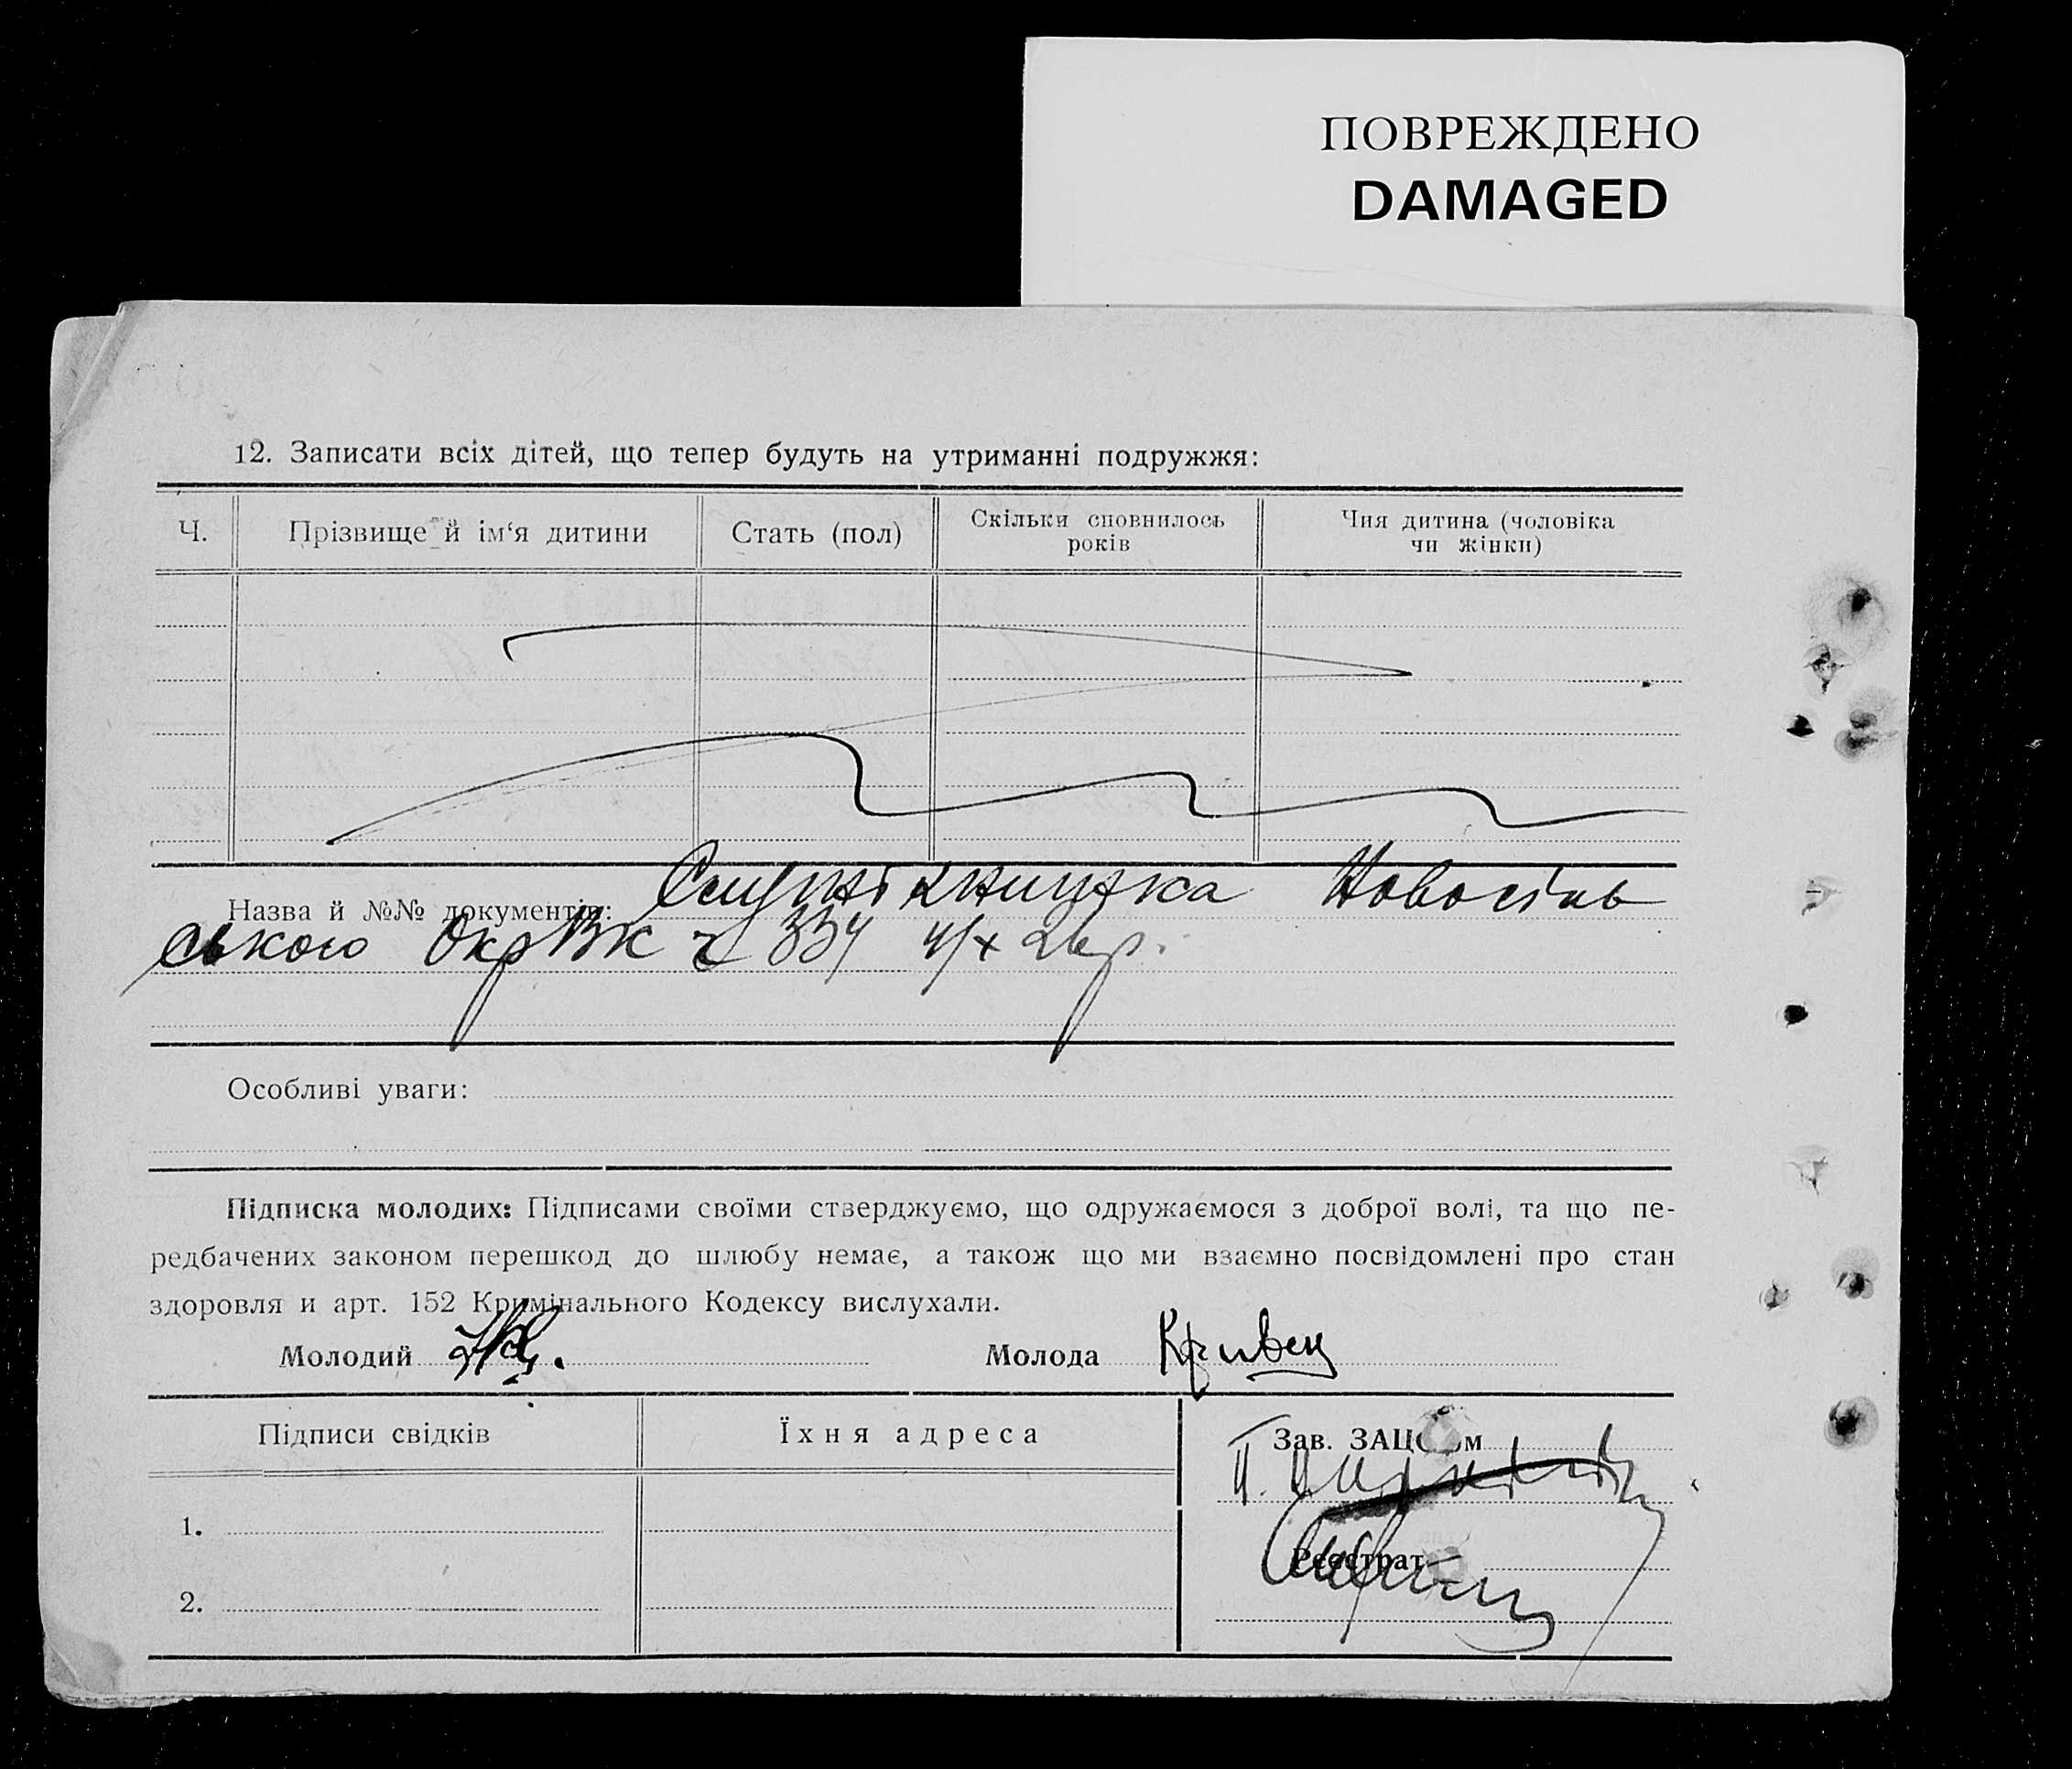 ПОВРЕЖДЕНО
DAMAGED
12. Записати всіх дітей, що тепер будуть на утриманні подружжя:
Ч. Прізвище й ім‘я дитини Стать (пол) Скільки сповнилось років Чия дитина (чоловіка чи жінки)
Назва й №№ документів:
ського ОкрВК ч 334
Особливі уваги:
Підписка молодих: Підписами своїми стверджуємо, що одружаємося з доброї волі, та що пе-
редбачених законом перешкод до шлюбу немає, а також що ми взаємно посвідомлені про стан
здоровля и арт. 152 Кримінального Кодексу вислухали.
Молодий Молода Кривец
Підписи свідків Їхня адреса Зав. ЗАЦСом
1.
Реєстрат
2.